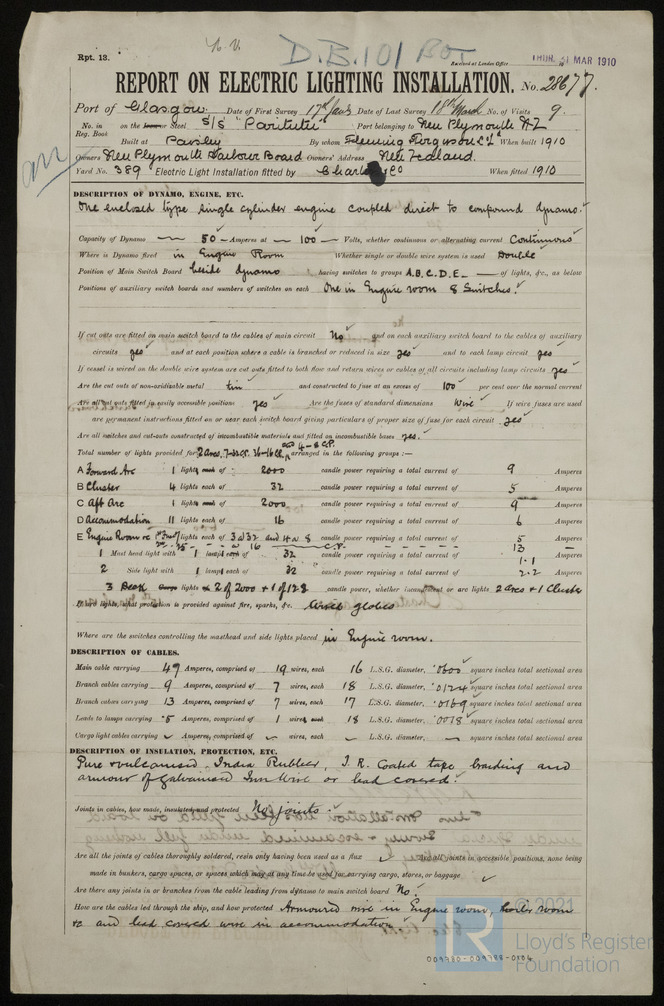 Rpt. 13.
D.B.101 Bot
Received at London Office THUR. 31 MAR 1910
REPORT ON ELECTRIC LIGHTING INSTALLATION. No. 28677.
Port of Glasgow. Date of First Survey 17th Jan Date of Last Survey 18th March No. of Visits 9.
No. in Reg. Book on the Iron or Steel S/S "Paritutu" Port belonging to New Plymouth N.Z
Built at Paisley By whom Fleming Ferguson Ld When built 1910
Owners New Plymouth Harbour Board Owners' Address New Zealand.
Yard No. 389 Electric Light Installation fitted by & Co When fitted 1910
DESCRIPTION OF DYNAMO, ENGINE, ETC.
One enclosed type single cylinder engine coupled direct to compound dynamo.
Capacity of Dynamo 50 Amperes at 100 Volts, whether continuous or alternating current Continuous
Where is Dynamo fixed in Engine Room Whether single or double wire system is used Double
Position of Main Switch Board beside dynamo having switches to groups A.B.C.D.E. of lights, &c., as below
Positions of auxiliary switch boards and numbers of switches on each One in Engine room 8 Switches.
If cut outs are fitted on main switch board to the cables of main circuit No and on each auxiliary switch board to the cables of auxiliary
circuits yes and at each position where a cable is branched or reduced in size yes and to each lamp circuit yes
If vessel is wired on the double wire system are cut outs fitted to both flow and return wires or cables of all circuits including lamp circuits yes
Are the cut outs of non-oxidizable metal tin and constructed to fuse at an excess of 100 per cent over the normal current
Are all cut outs fitted in easily accessible positions yes Are the fuses of standard dimensions Wire If wire fuses are used
are permanent instructions fitted on or near each switch board giving particulars of proper size of fuse for each circuit yes
Are all switches and cut-outs constructed of incombustible materials and fitted on incombustible bases yes.
Total number of lights provided for 2 arcs, 7-32 C.P. 16-16 C.P. and 4-8 C.P. arranged in the following groups :—
A Forward Arc 1 lights each of 2000 candle power requiring a total current of 9 Amperes
B Cluster 4 lights each of 32 candle power requiring a total current of 5 Amperes
C Aft Arc 1 lights each of 2000 candle power requiring a total current of 9 Amperes
D Accommodation 11 lights each of 16 candle power requiring a total current of 6 Amperes
E Engine Room &c lights each of 3 of 32 and 4 of 8 candle power requiring a total current of 5 Amperes
16 C.P. 13
1 Mast head light with 1 lamps each of 32 candle power requiring a total current of 1.1
2 Side light with 1 lamps each of 32 candle power requiring a total current of 2.2 Amperes
3 Deck Cargo lights of 2 of 2000 + 1 of 128 candle power, whether incandescent or arc lights 2 arcs + 1 Cluster
If arc lights, what protection is provided against fire, sparks, &c. globes
Where are the switches controlling the masthead and side lights placed in Engine room.
DESCRIPTION OF CABLES.
Main cable carrying 49 Amperes, comprised of 19 wires, each 16 L.S.G. diameter, .0600 square inches total sectional area
Branch cables carrying 9 Amperes, comprised of 7 wires, each 18 L.S.G. diameter, .0124 square inches total sectional area
Branch cables carrying 13 Amperes, comprised of 7 wires, each 17 L.S.G. diameter, .0169 square inches total sectional area
Leads to lamps carrying .5 Amperes, comprised of 1 wires, each 18 L.S.G. diameter, .0018 square inches total sectional area
Cargo light cables carrying Amperes, comprised of wires, each L.S.G. diameter, square inches total sectional area
DESCRIPTION OF INSULATION, PROTECTION, ETC.
Pure & vulcanised India Rubber, I.R. Coated tape braiding and
armour of Galvanised Iron Wire or lead covered.
Joints in cables, how made, insulated, and protected No joints
Are all the joints of cables thoroughly soldered, resin only having been used as a flux Are all joints in accessible positions, none being
made in bunkers, cargo spaces, or spaces which may at any time be used for carrying cargo, stores, or baggage
Are there any joints in or branches from the cable leading from dynamo to main switch board No.
How are the cables led through the ship, and how protected Armoured wire in Engine room, boiler room
&c and lead covered wire in accommodation.
© 2021
LR
Lloyd's Register
Foundation
009780-009788-0104